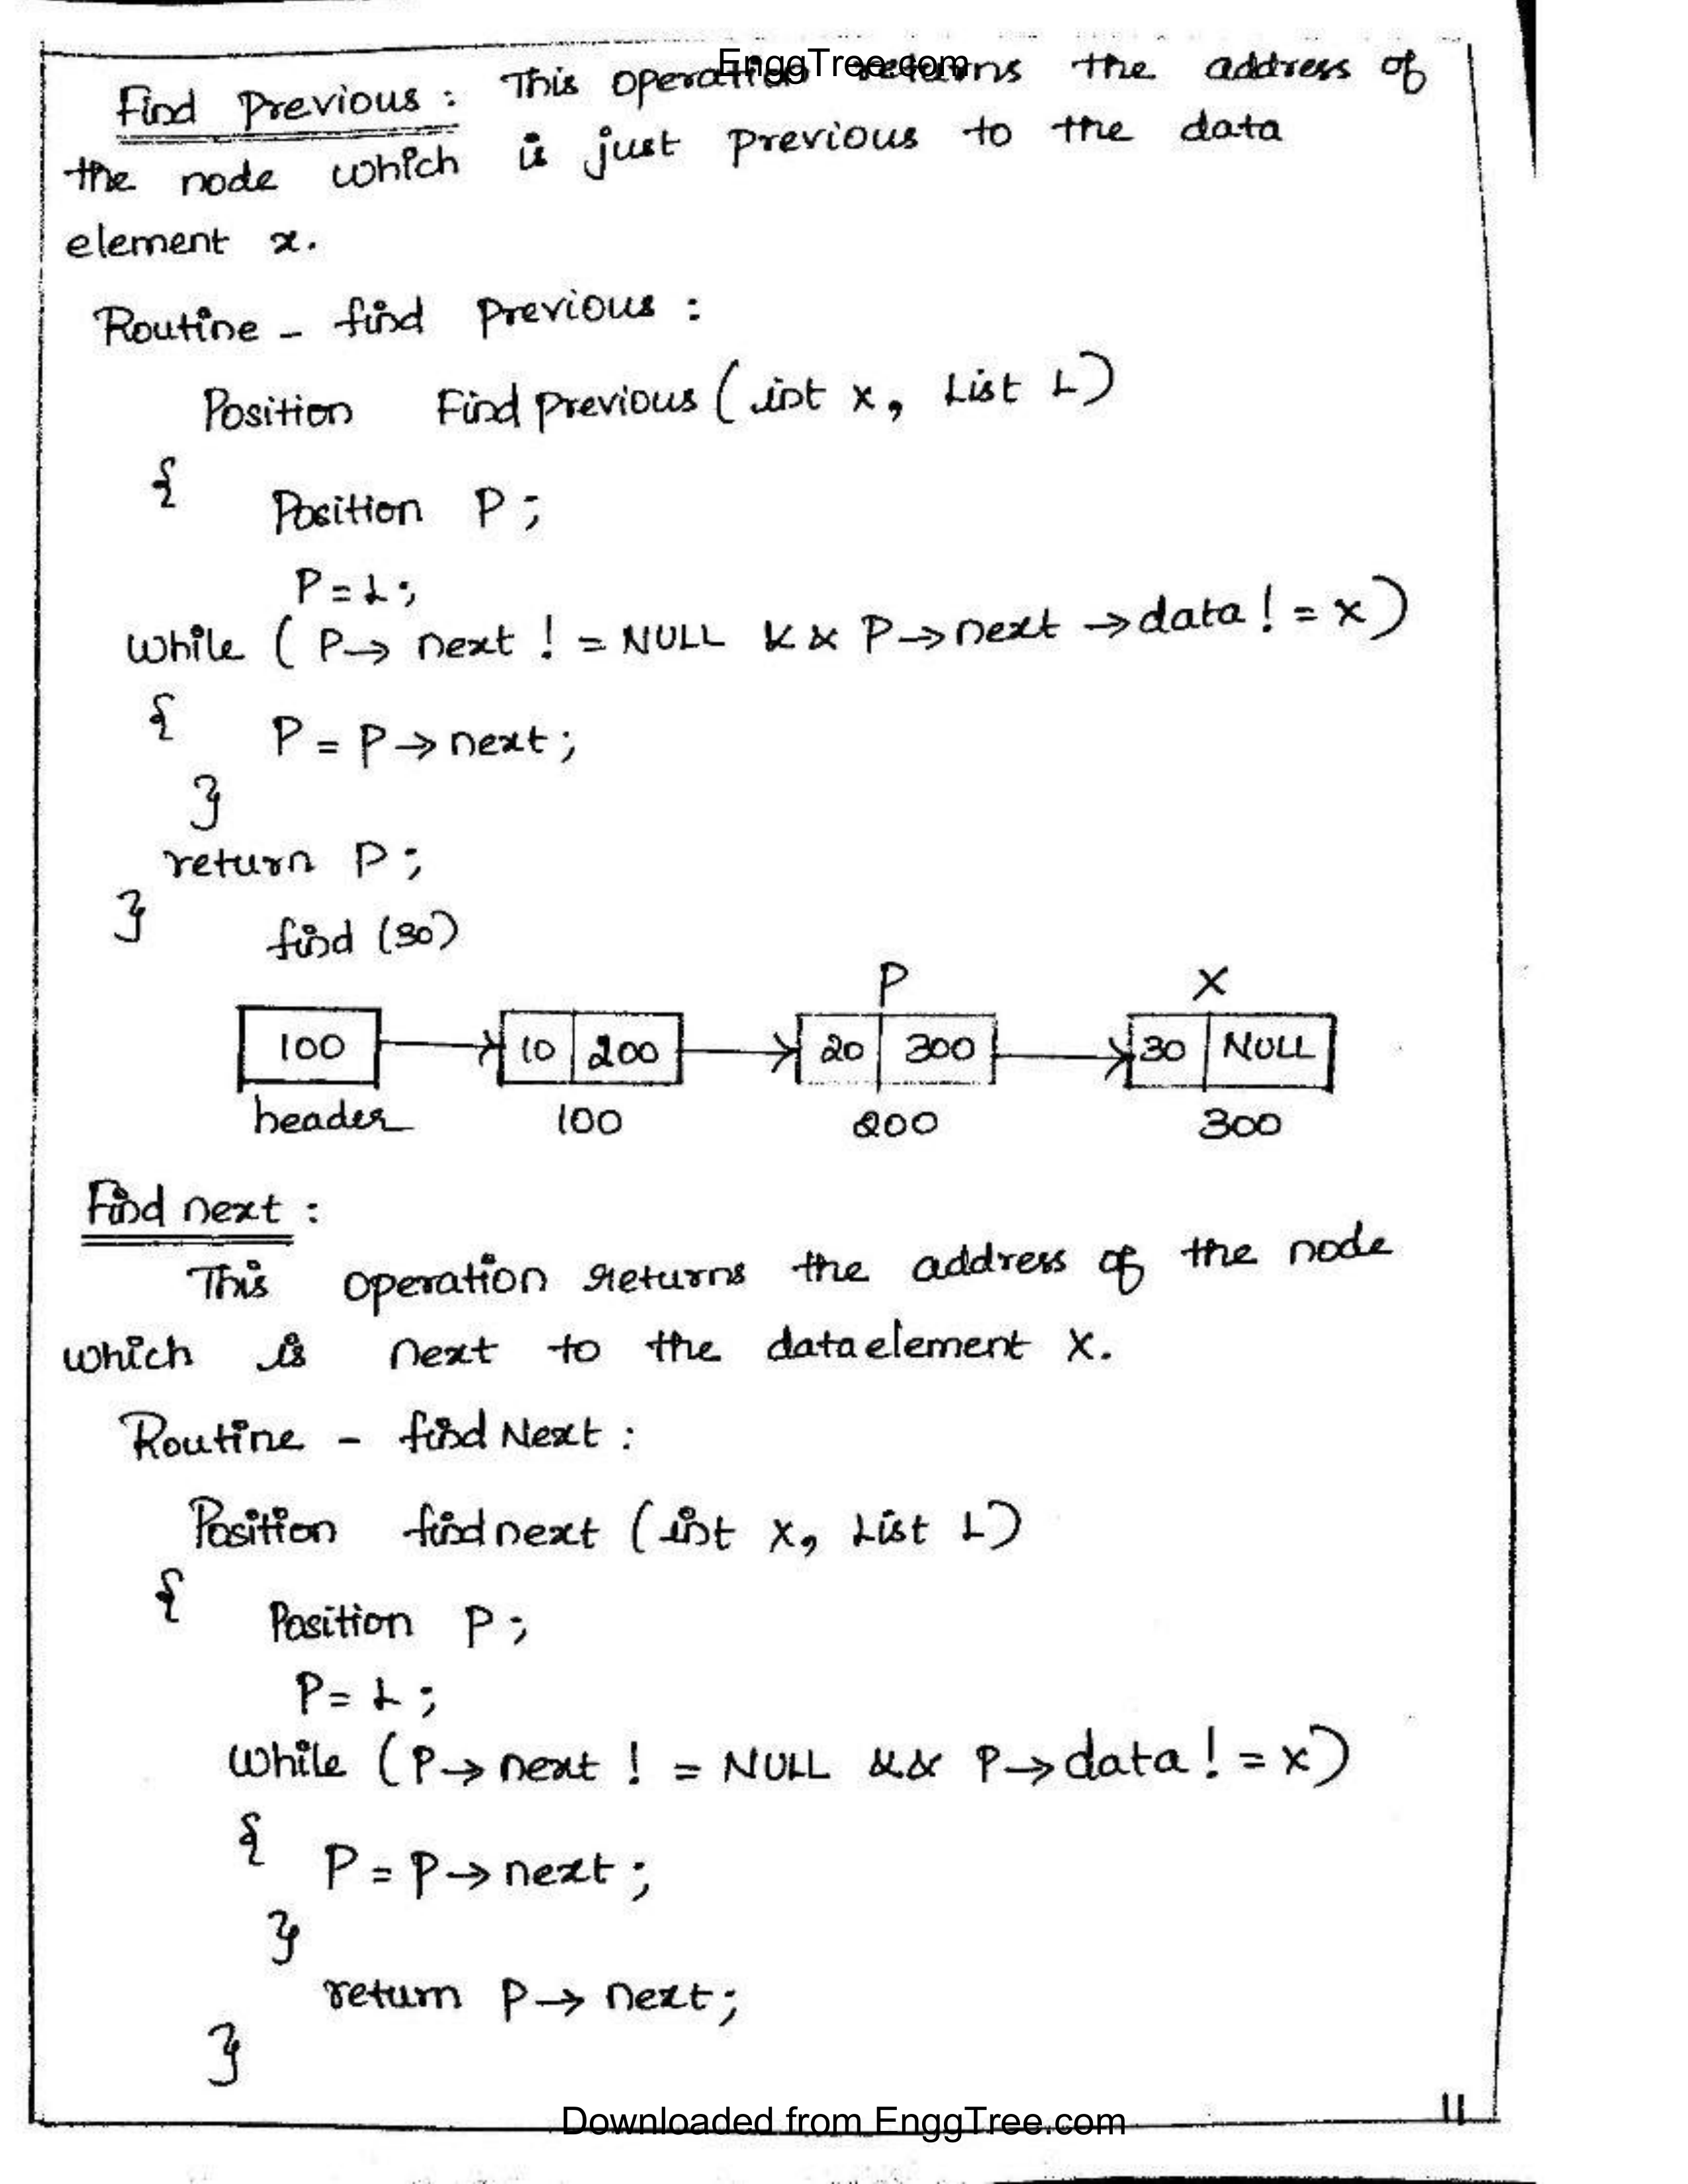 EnggTree.com
Find Previous : This operation returns the address of
the node which is just previous to the data
element x.
Routine - find previous :
Position Find previous ( int x, List L )
{ Position P ;
P = L ;
while ( P → next ! = NULL && P → next → data ! = x )
{ P = P → next ;
}
return P ;
} find (30)
P X
100 10 200 20 300 30 NULL
header 100 200 300
Find next :
This operation returns the address of the node
which is next to the data element X.
Routine - find Next :
Position find next ( int x, List L )
{ Position P ;
P = L ;
while ( P → next ! = NULL && P → data ! = x )
{ P = P → next ;
}
return P → next ;
}
11
Downloaded from EnggTree.com